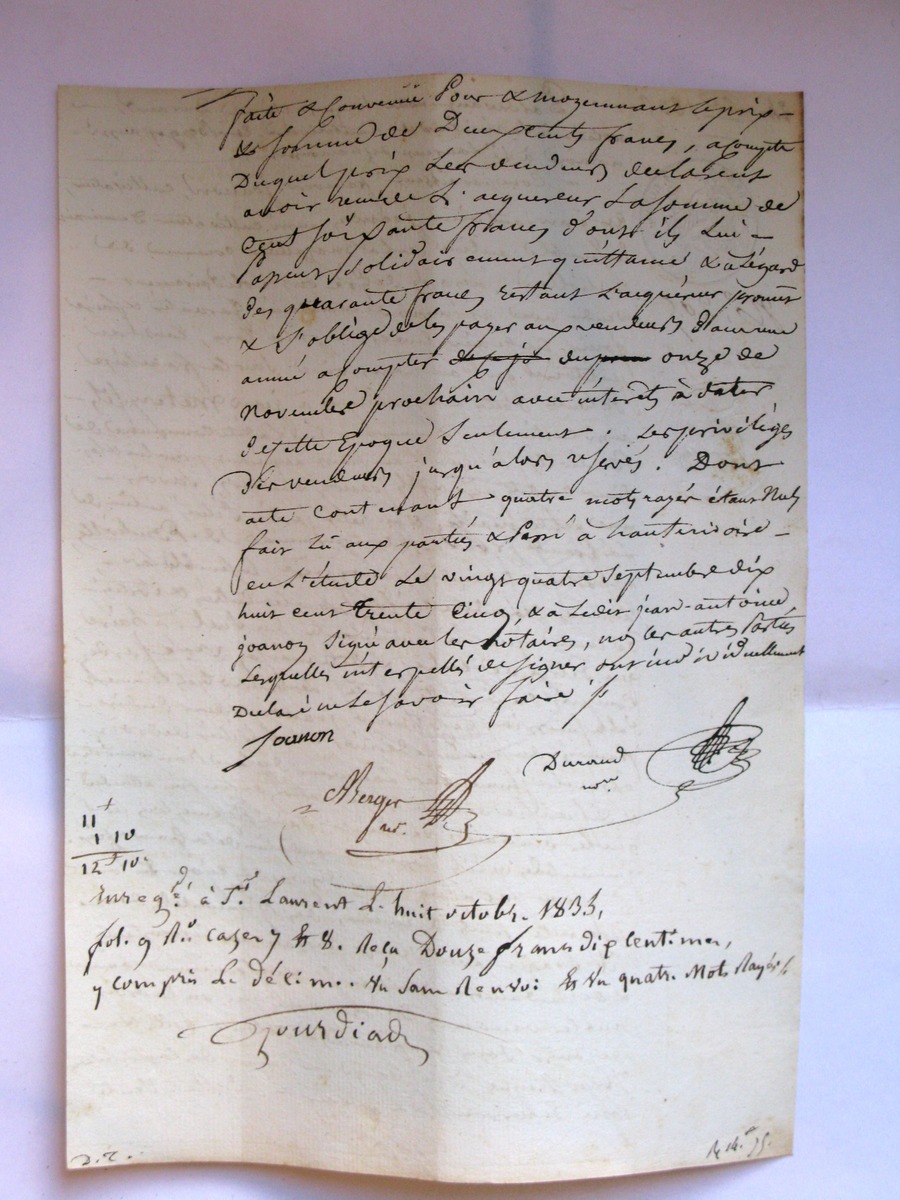 faite & Convenüe Pour & moyennant le prix
& somme de Deux cents francs, acompte
Duquel prix Les vendeurs declarent
avoir reçu de L'acquereur La somme de
Cent soixante francs dont ils Lui
Passent solidairement quittance & a Légard
des quarante francs restant L'acquéreur promet
& s'oblige de les payer aux vendeurs d'ans une
année acompter onze de
Novembre prochain avec intérets à dater
de cette Epoque Seulement. Les priviléges
Des vendeurs jusqu'alors reservés. Dont
acte contenant quatre mots rayés étant Nuls
fait Lu aux parties & Passé à hauterivoire
en L'étude Le vingt quatre Septembre dix
huit cent trente Cinq, & a Ledit jean-antoine
joanon Signé avec les Notaires, non les autres Parties
Lesquelles interpellés de signer ont individuellement
Declaré ne Le savoir faire
Joanon
Durand
nre
Berger
nre.
11
1 10
12 10
Enregé. à St. Laurent Le huit octobre 1835,
fol. 9 Ro. cazes 7 Et 8. Reçu Douze francs dix centimes,
y compris Le décime. Vu sans Renvoi Et Vu quatre Mots Rayés
Gourdiad
D.T.